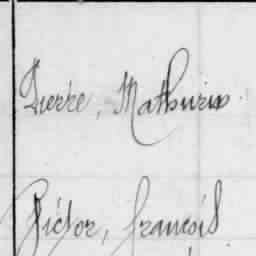 Pierre, Mathurin
Victor, François